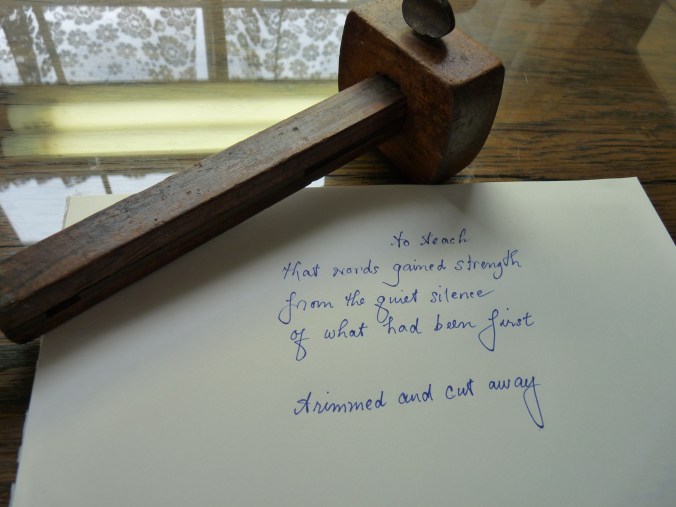 to teach
that words gained strength
from the quiet silence
of what had been first
trimmed and cut away